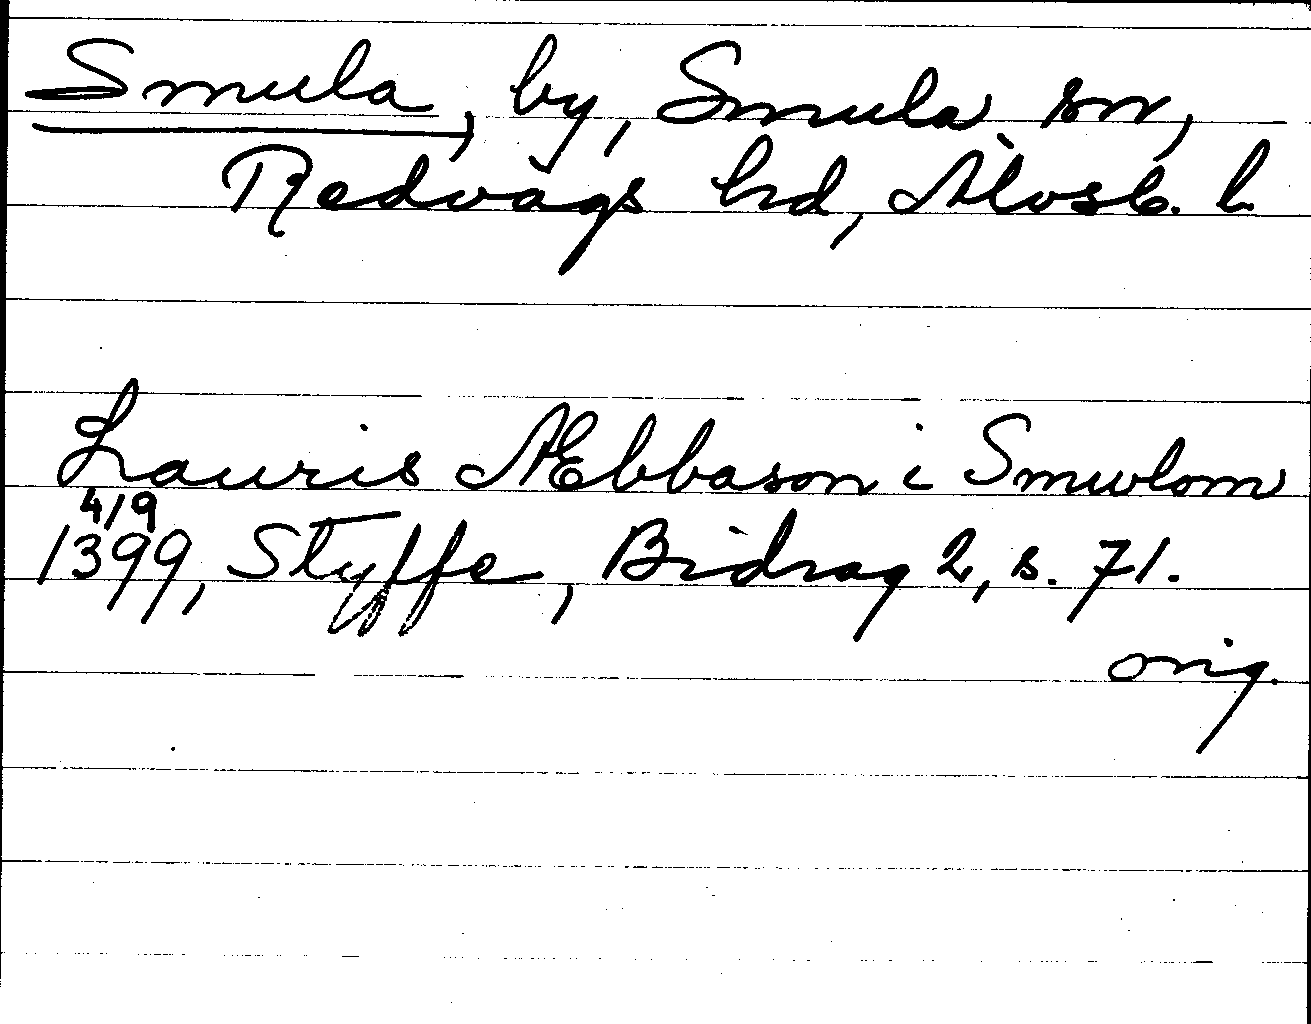 Smula, by, Smula sn,
Redvägs hd, Älvsb. l.
Lauris Æbbason i Smwlom
4/9
1399, Styffe, Bidrag 2, s. 71.
orig.